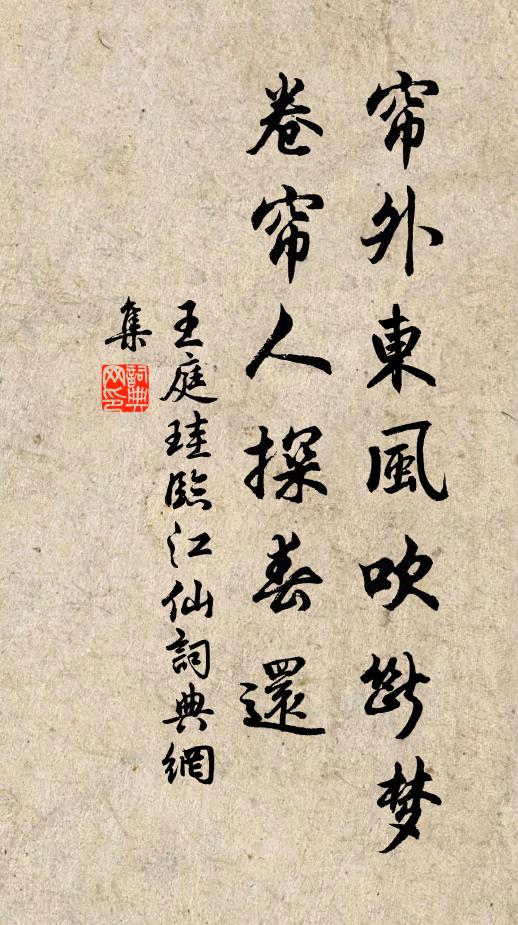 帘外東風吹斷梦
卷帘人探春還
王庭珪臨江仙詞典網
集
詞典网印